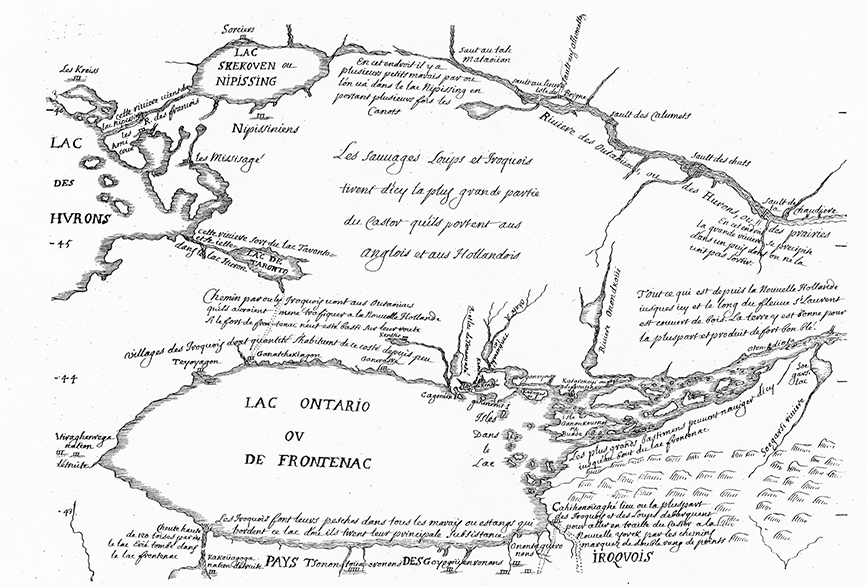 Sorciers
LAC
SKEKOVEN ou
NIPISSING
Les Kreiss
46
cette riviere vient du
lac Nipissing
R. des françois
les
Ami
coue
Nipissiniens
les Missisagé
LAC
DES
HVRONS
45
cette riviere sort du lac Taronto
et se iette
dans le lac Huron
LAC DE
TARONTO
En cet endroit il y a
plusieurs petits marais par ou
lon va dans le lac Nipissing en
portant plusieurs fois les
Canots
Saut au talc
Mataouan
sault du lieure
isle du
sault des Calumets
Riuiere des Outauacs, ou des Hurons, ou des prairies
sault des chats
sault de la
chaudiere
En cet endroit
la grande riuiere se precipite
dans un puis dont on ne la
voit pas sortir.
Les Sauvages Loups et Iroquois
tirent d'icy la plus grande partie
du Castor quils portent aus
anglois et aus Hollandois
Chemin par ou les Iroquois vont aus Outauacs
quils auroient mené trafiquer a la Nouvelle Hollande
si le fort de frontenac neut esté basti sur leur route
Riuiere Onondkouy
Tout ce qui est depuis la Nouvelle Hollande
iusques icy et le long du fleuve St Laurent
est couuert de bois. La terre y est bonne pour
la pluspart et produit de fort bon blé.
villages des Iroquois dont quantité shabitent de ce costé depuis peu
Teyoyagon
Ganatchekiagon
Ganeraské
Kenthe
44
LAC ONTARIO
OV
DE FRONTENAC
Isles
Dans
le
Lac
isle
Les plus grands bastimens peuvent naviger d'icy
iusqu'au bout du lac frontenac
lac
Soegatsi riviere
nation
détruite
43
Cheute haute
de 120 toises par ou
le lac Erié tombe dans
le lac frontenac
Les Iroquois font leurs pesches dans tous les marais ou estangs qui
bordent ce lac d'ou ils tirent leur principale subsistance
Kakouagoga
nation détruite
PAYS Tsonontouaeronons DES Goyogouenronons
nons
Cahihonoüaghé lieu ou la pluspart
des Iroquois et des Loups debarquent
pour aller en traitte du Castor a la
Nouvelle Yorck par les chemins
marqués de double rang de points
IROQVOIS